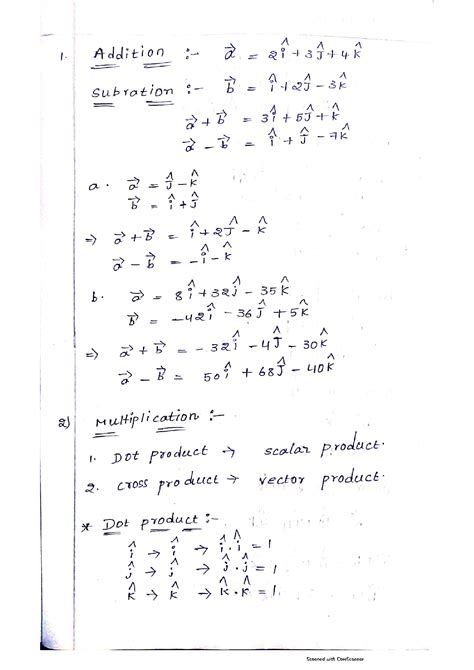 1. Addition :- a⃗ = 2î + 3ĵ + 4k̂
Subration :- b⃗ = î + 2ĵ - 3k̂
a⃗ + b⃗ = 3î + 5ĵ + k̂
a⃗ - b⃗ = î + ĵ - 7k̂
a. a⃗ = ĵ - k̂
b⃗ = î + ĵ
=> a⃗ + b⃗ = î + 2ĵ - k̂
a⃗ - b⃗ = -î - k̂
b. a⃗ = 8î + 32ĵ - 35k̂
b⃗ = -42î - 36ĵ + 5k̂
=> a⃗ + b⃗ = -32î - 4ĵ - 30k̂
a⃗ - b⃗ = 50î + 68ĵ - 40k̂
2) Multiplication :-
1. Dot product → scalar product.
2. cross product → vector product.
* Dot product :-
î → î → î.î = 1
ĵ → ĵ → ĵ.ĵ = 1
k̂ → k̂ → k̂.k̂ = 1
Scanned with CamScanner